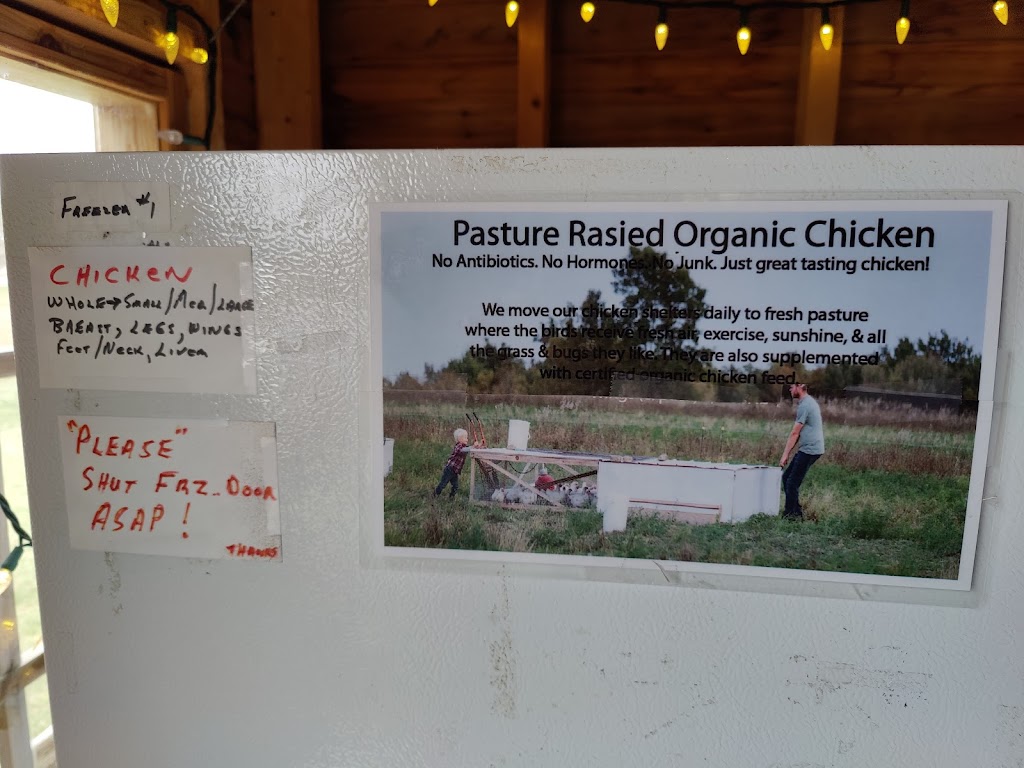 FREEZER #1
CHICKEN
WHOLE→SMALL/MED/LARGE
BREAST, LEGS, WINGS
FEET/NECK, LIVER
"PLEASE"
SHUT FRZ. DOOR
ASAP!
THANKS
Pasture Rasied Organic Chicken
No Antibiotics. No Hormones. No Junk. Just great tasting chicken!
We move our chicken shelters daily to fresh pasture
where the birds receive fresh air, exercise, sunshine, & all
the grass & bugs they like. They are also supplemented
with certified organic chicken feed.